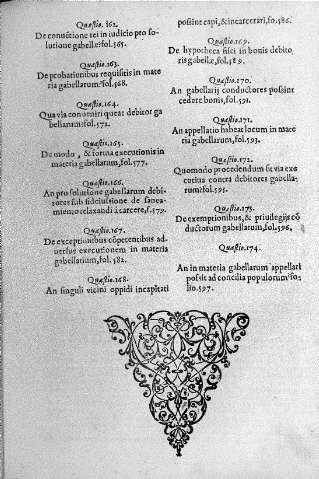 Quæstio. 162.
De conuictione rei in iudicio pro so-
lutione gabellæ. fol. 565.
Quæstio. 163.
De probationibus requisitis in mate
ria gabellarum. fol. 568.
Quæstio. 164.
Qua via conueniri queat debitor ga
bellarum: fol. 572.
Quæstio. 165.
De modo, & forma executionis in
materia gabellarum, fol. 577.
Quæstio. 166.
An pro solutione gabellarum debi-
tores sub fideiussione de sanea-
miento relaxandi à carcere, f. 579.
Quæstio. 167.
De exceptionibus cõpetentibus ad-
uersus executionem in materia
gabellarum, fol. 582.
Quæstio. 168.
An singuli vicini oppidi incapitati
possint capi, & incarcerari, fo. 586.
Quæstio. 169.
De hypotheca fisci in bonis debito
ris gabellæ, fol. 589.
Quæstio. 170.
An gabellarij conductores possint
cedere bonis, fol. 591.
Quæstio. 171.
An appellatio habeat locum in mate
ria gabellarum, fol. 593.
Quæstio. 172.
Quomodo procedendum sit via exe
cutiua contra debitores gabella-
rum? fol. 595.
Quæstio. 173.
De exemptionibus, & priuilegijs cõ
ductorum gabellarum, fol. 596,
Quæstio. 174.
An in materia gabellarum appellari
possit ad concilia populorum? fo-
lio. 597.